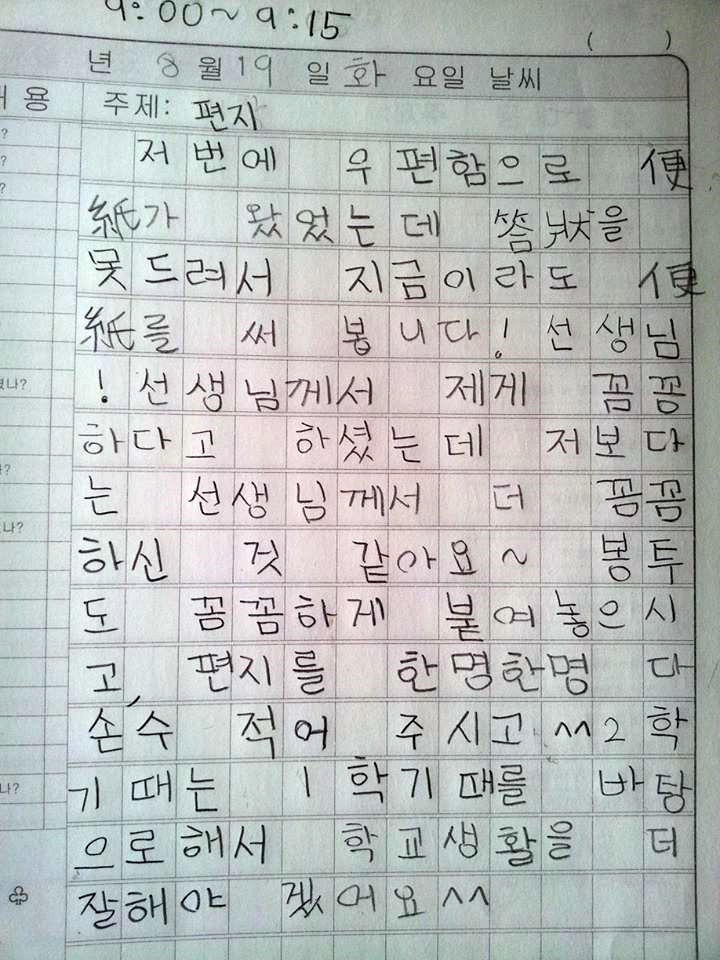 9:00~9:15
( )
년 8월 19일 화요일 날씨
용 주제: 편지
저번에 우편함으로 便
紙가 왔었는데 答狀을
못드려서 지금이라도 便
紙를 써 봅니다! 선생님
! 선생님께서 제게 꼼꽁
하다고 하셨는데 저보다
는 선생님께서 더 꼼꼼
하신 것 같아요~ 봉투
도 꽁꼼하게 붙여놓으시
고, 편지를 한명한명 다
손수 적어 주시고 ^^ 2학
기 때는 1학기때를 바탕
으로해서 학교생활을 더
잘해야 겠어요^^